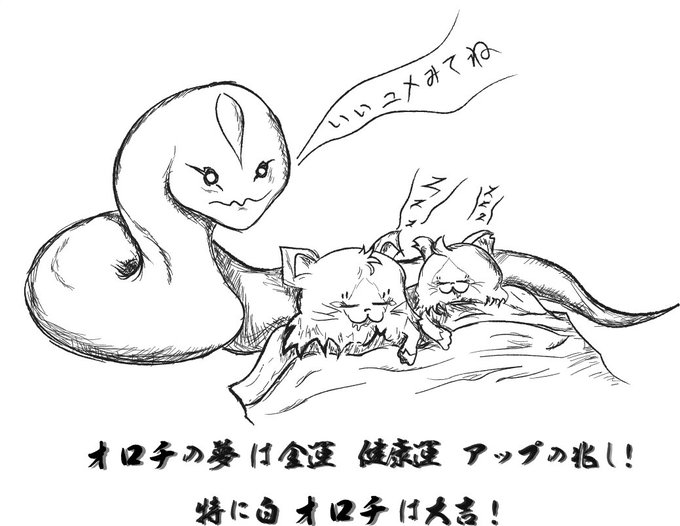 いいユメみてね
オロチの夢は金運 健康運 アップの兆し!
特に白オロチは大吉!